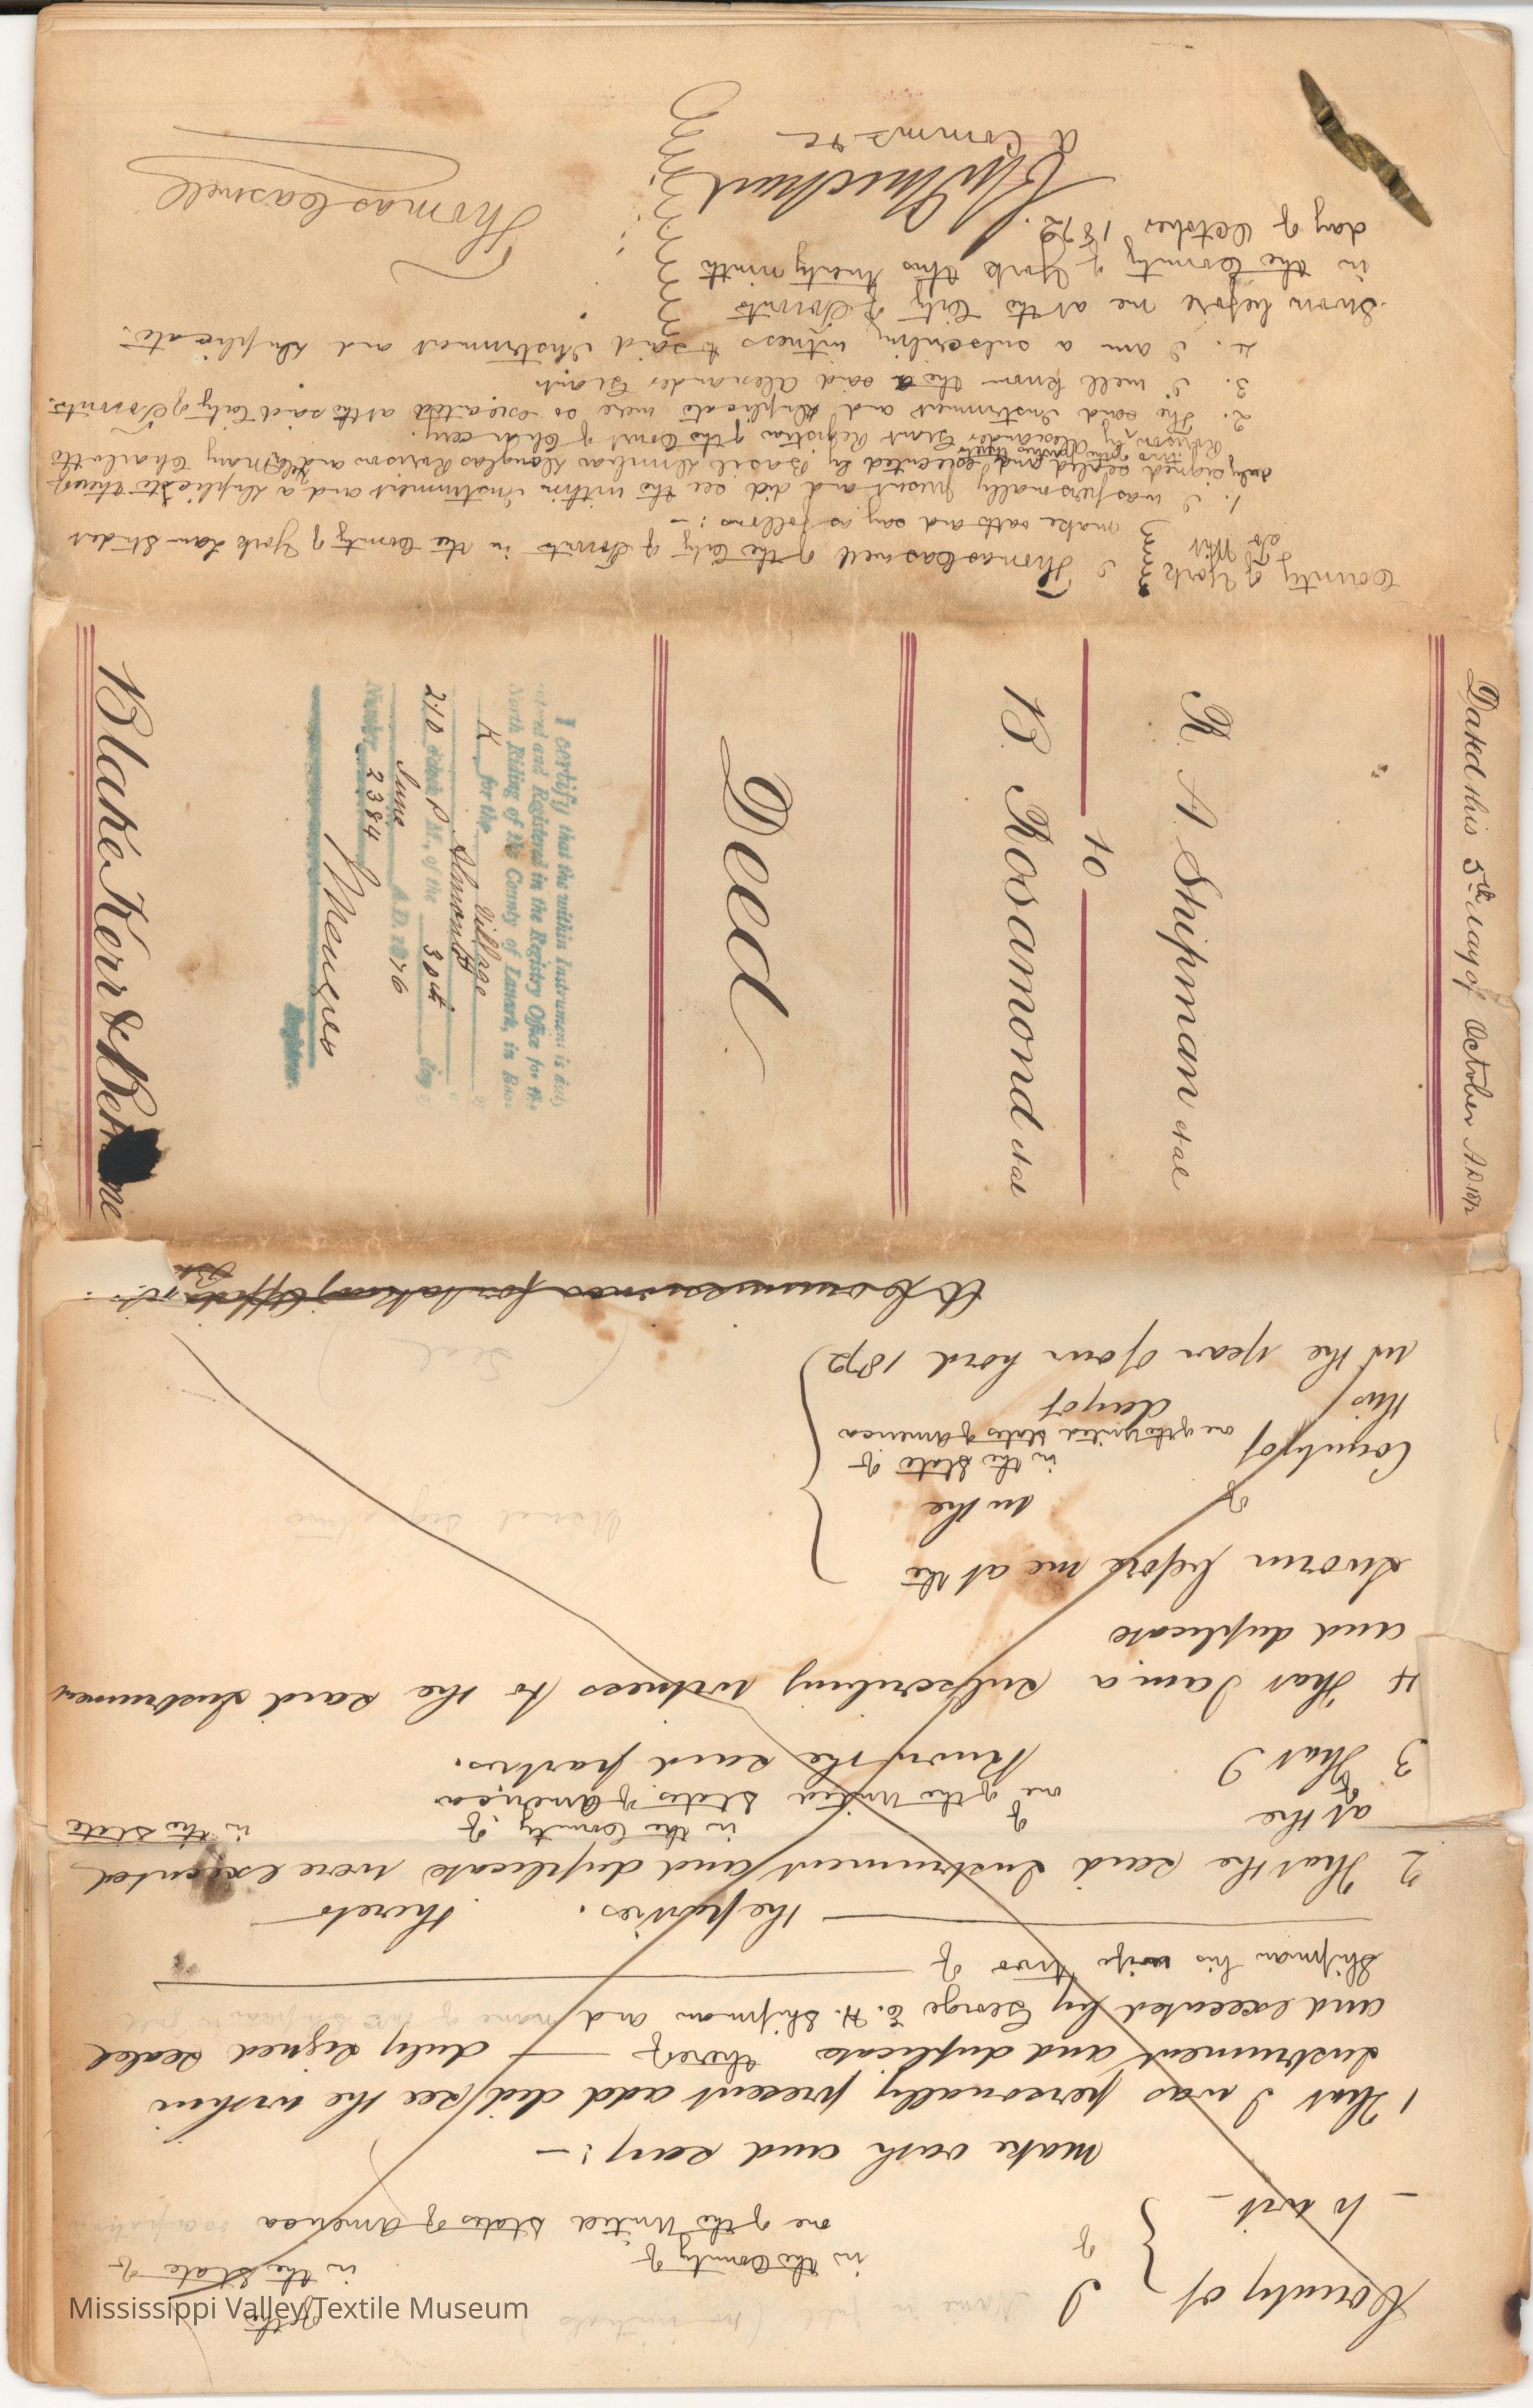 County of York
To Wit
I Thomas Caswell of the City of Toronto in the County of York Law Student
make oath and say as follows :-
1. I was personally present and did see the within Instrument and a duplicate thereof
duly signed sealed and executed by Basil Dunbar Douglas Rorison and Mary Charlotte
Rorison by Alexander Grant Registrar of the Court of Chancery.
2. The said Instrument and duplicate were so executed at the said City of Toronto.
3. I well know the said Alexander Grant.
4. I am a subscribing witness to said Instrument and duplicate.
Sworn before me at the City of Toronto
in the County of York this twenty ninth
day of October 1872.
a Commr &c
Thomas Caswell
Dated this 5th day of October A.D. 1872
R. A. Shipman et al
to
B. Rosamond et al
Deed
I certify that the within Instrument is duly
Entered and Registered in the Registry Office for the
North Riding of the County of Lanark, in Book
K for the Village of
Almonte
2:10 o'clock P M., of the 30th day of
June A.D. 1876
Number 2384
Menzies
Registrar.
Blake Kerr & Bethune
County of
To wit
I
of
of the
in the County of
in the State of
one of the United States of America
make oath and say :-
1 That I was personally present add did see the within
Instrument and duplicate thereof duly signed sealed
and executed by George E. H. Shipman and
Shipman his wife two of
the parties. thereto
2 That the said Instrument and duplicate were executed
at the of in the County of in the State
of one of the United States of America
3 That I know the said parties.
4 That I am a subscribing witness to the said Instrument
and duplicate
Sworn before me at the
of in the
County of in the State of
one of the United States of America
this day of
in the year of our Lord 1872
Seal
A Commissioner for taking Affidavits
Mississippi Valley Textile Museum